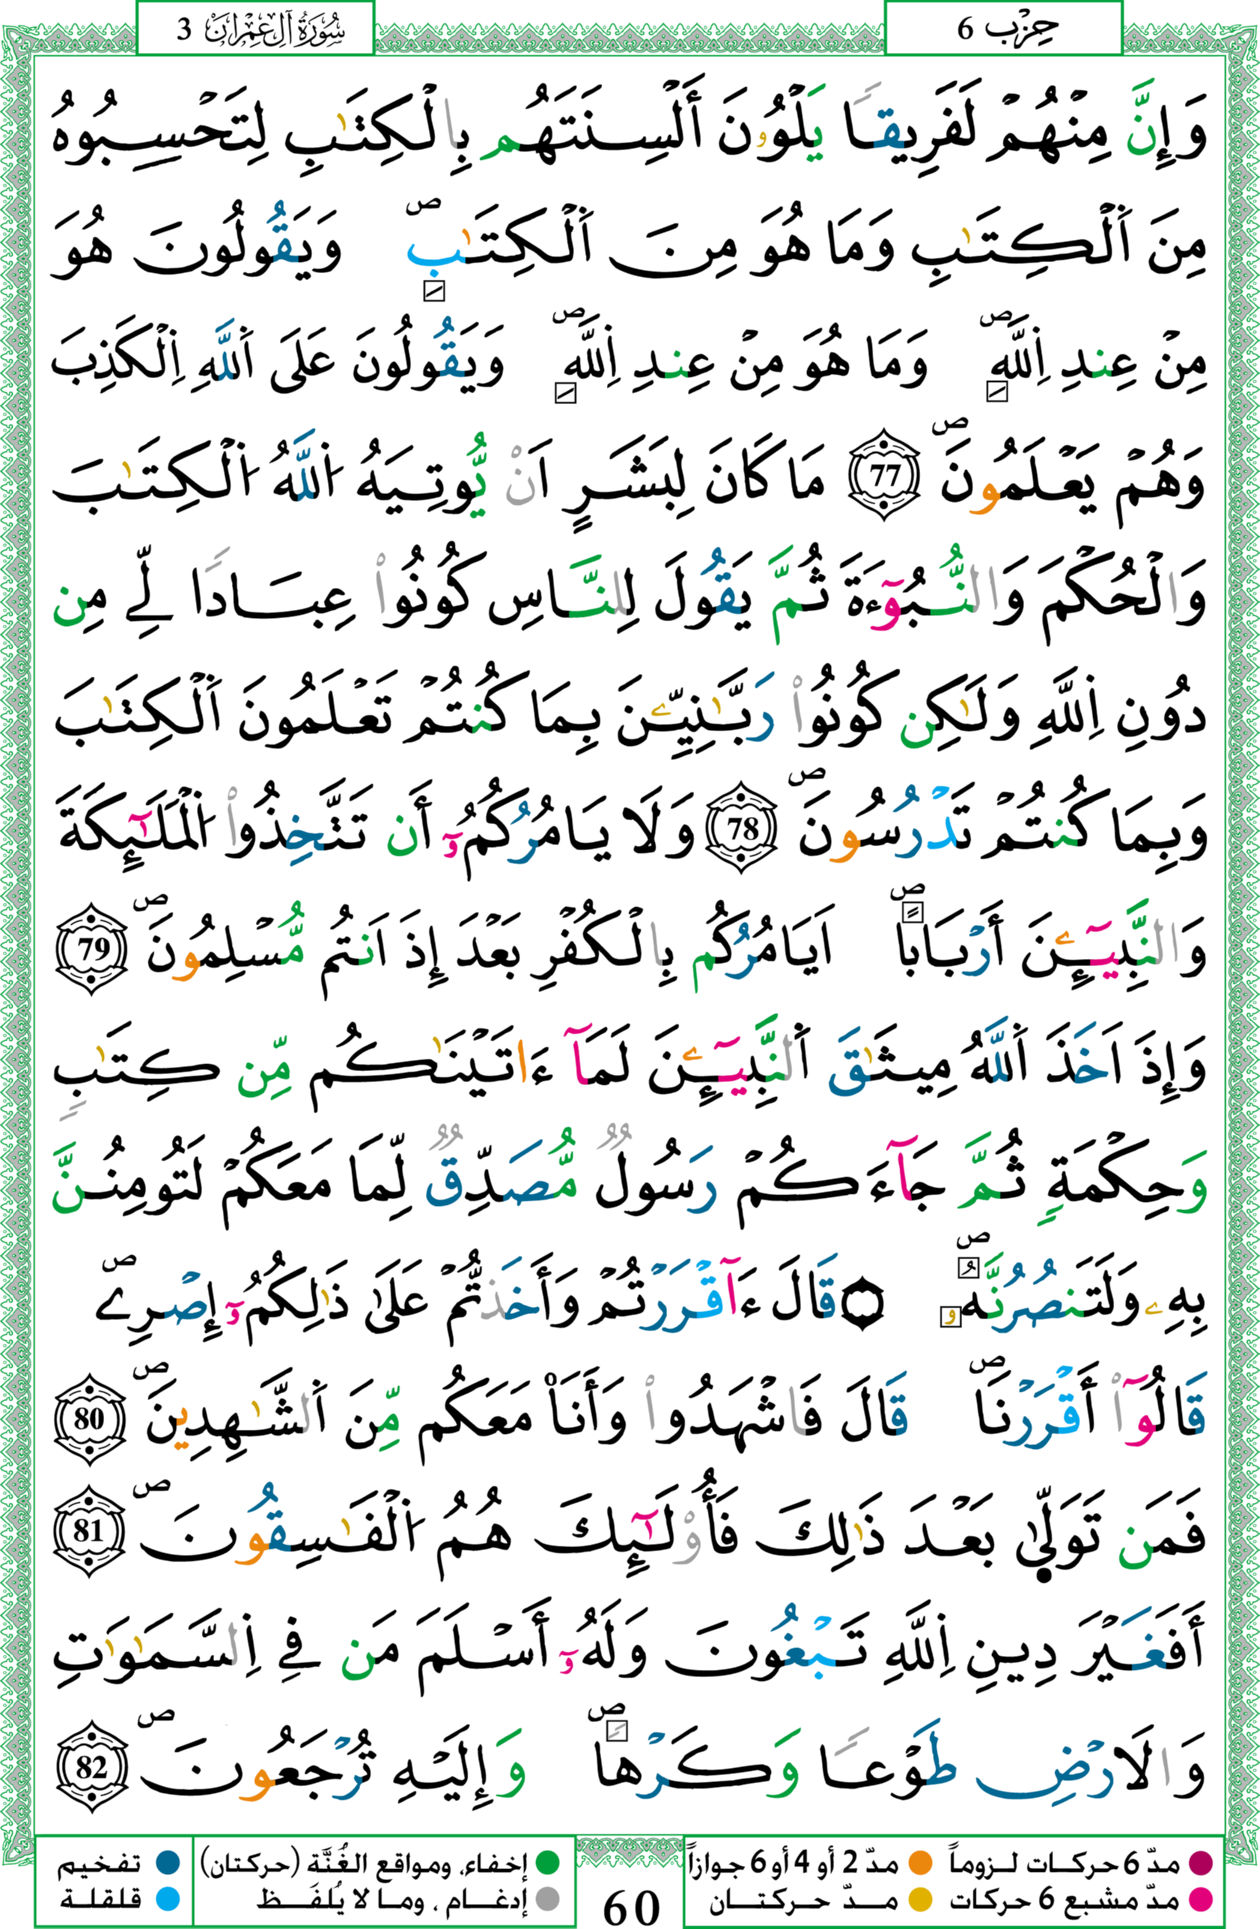 سُورَةُ آلِ عِمْرَانَ 3
حِزْب 6
وَإِنَّ مِنْهُمْ لَفَرِيقاً يَلْوُۥنَ أَلْسِنَتَهُم بِالْكِتَٰبِ لِتَحْسِبُوهُ
مِنَ اَ۬لْكِتَٰبِ وَمَا هُوَ مِنَ اَ۬لْكِتَٰبِ ص وَيَقُولُونَ هُوَ
مِنْ عِندِ اِ۬للَّهِ ص وَمَا هُوَ مِنْ عِندِ اِ۬للَّهِ ص وَيَقُولُونَ عَلَى اَ۬للَّهِ اِ۬لْكَذِبَ
وَهُمْ يَعْلَمُونَ ص 77 مَا كَانَ لِبَشَرٍ اَنْ يُّوتِيَهُ اُ۬للَّهُ اُ۬لْكِتَٰبَ
وَالْحُكْمَ وَالنُّبُوٓءَةَ ثُمَّ يَقُولَ لِلنَّاسِ كُونُواْ عِبَاداً لِّے مِن
دُونِ اِ۬للَّهِ وَلَٰكِن كُونُواْ رَبَّٰنِيِّۦنَ بِمَا كُنتُمْ تَعْلَمُونَ اَ۬لْكِتَٰبَ
وَبِمَا كُنتُمْ تَدْرُسُونَ ص 78 وَلَا يَامُرُكُمُۥٓ أَن تَتَّخِذُواْ اُ۬لْمَلَٰٓئِكَةَ
وَالنَّبِيٓـِٕۧنَ أَرْبَاباً ص اَيَامُرُكُم بِالْكُفْرِ بَعْدَ إِذَ اَنتُم مُّسْلِمُونَ ص 79
وَإِذَ اَخَذَ اَ۬للَّهُ مِيثَٰقَ اَ۬لنَّبِيٓـِٕۧنَ لَمَآ ءَاتَيْنَٰكُم مِّن كِتَٰبٍ
وَحِكْمَةٍ ثُمَّ جَآءَكُمْ رَسُولٌ مُّصَدِّقٌ لِّمَا مَعَكُمْ لَتُومِنُنَّ
بِهِۦ وَلَتَنصُرُنَّهُۥ ص ۞ قَالَ ءَآقْرَرْتُمْ وَأَخَذتُّمْ عَلَىٰ ذَٰلِكُمُۥٓ إِصْرِے ص
قَالُوٓاْ أَقْرَرْنَا ص قَالَ فَاشْهَدُواْ وَأَنَا۠ مَعَكُم مِّنَ اَ۬لشَّٰهِدِينَ ص 80
فَمَن تَوَلّ۪ىٰ بَعْدَ ذَٰلِكَ فَأُوْلَٰٓئِكَ هُمُ اُ۬لْفَٰسِقُونَ ص 81
أَفَغَيْرَ دِينِ اِ۬للَّهِ تَبْغُونَ وَلَهُۥٓ أَسْلَمَ مَن فِے اِ۬لسَّمَٰوَٰتِ
وَالَارْضِ طَوْعاً وَكَرْهاً ص وَإِلَيْهِ تُرْجَعُونَ ص 82
مدّ 6 حركات لـزوماً مدّ 2 أو 4 أو 6 جوازاً
مدّ مشبع 6 حركات مــدّ حركـتــان
60
إخفاء، ومواقع الغُنَّة (حركتان) تفخيم
إدغـام ، ومـا لا يُـلفَـظ قلقلة